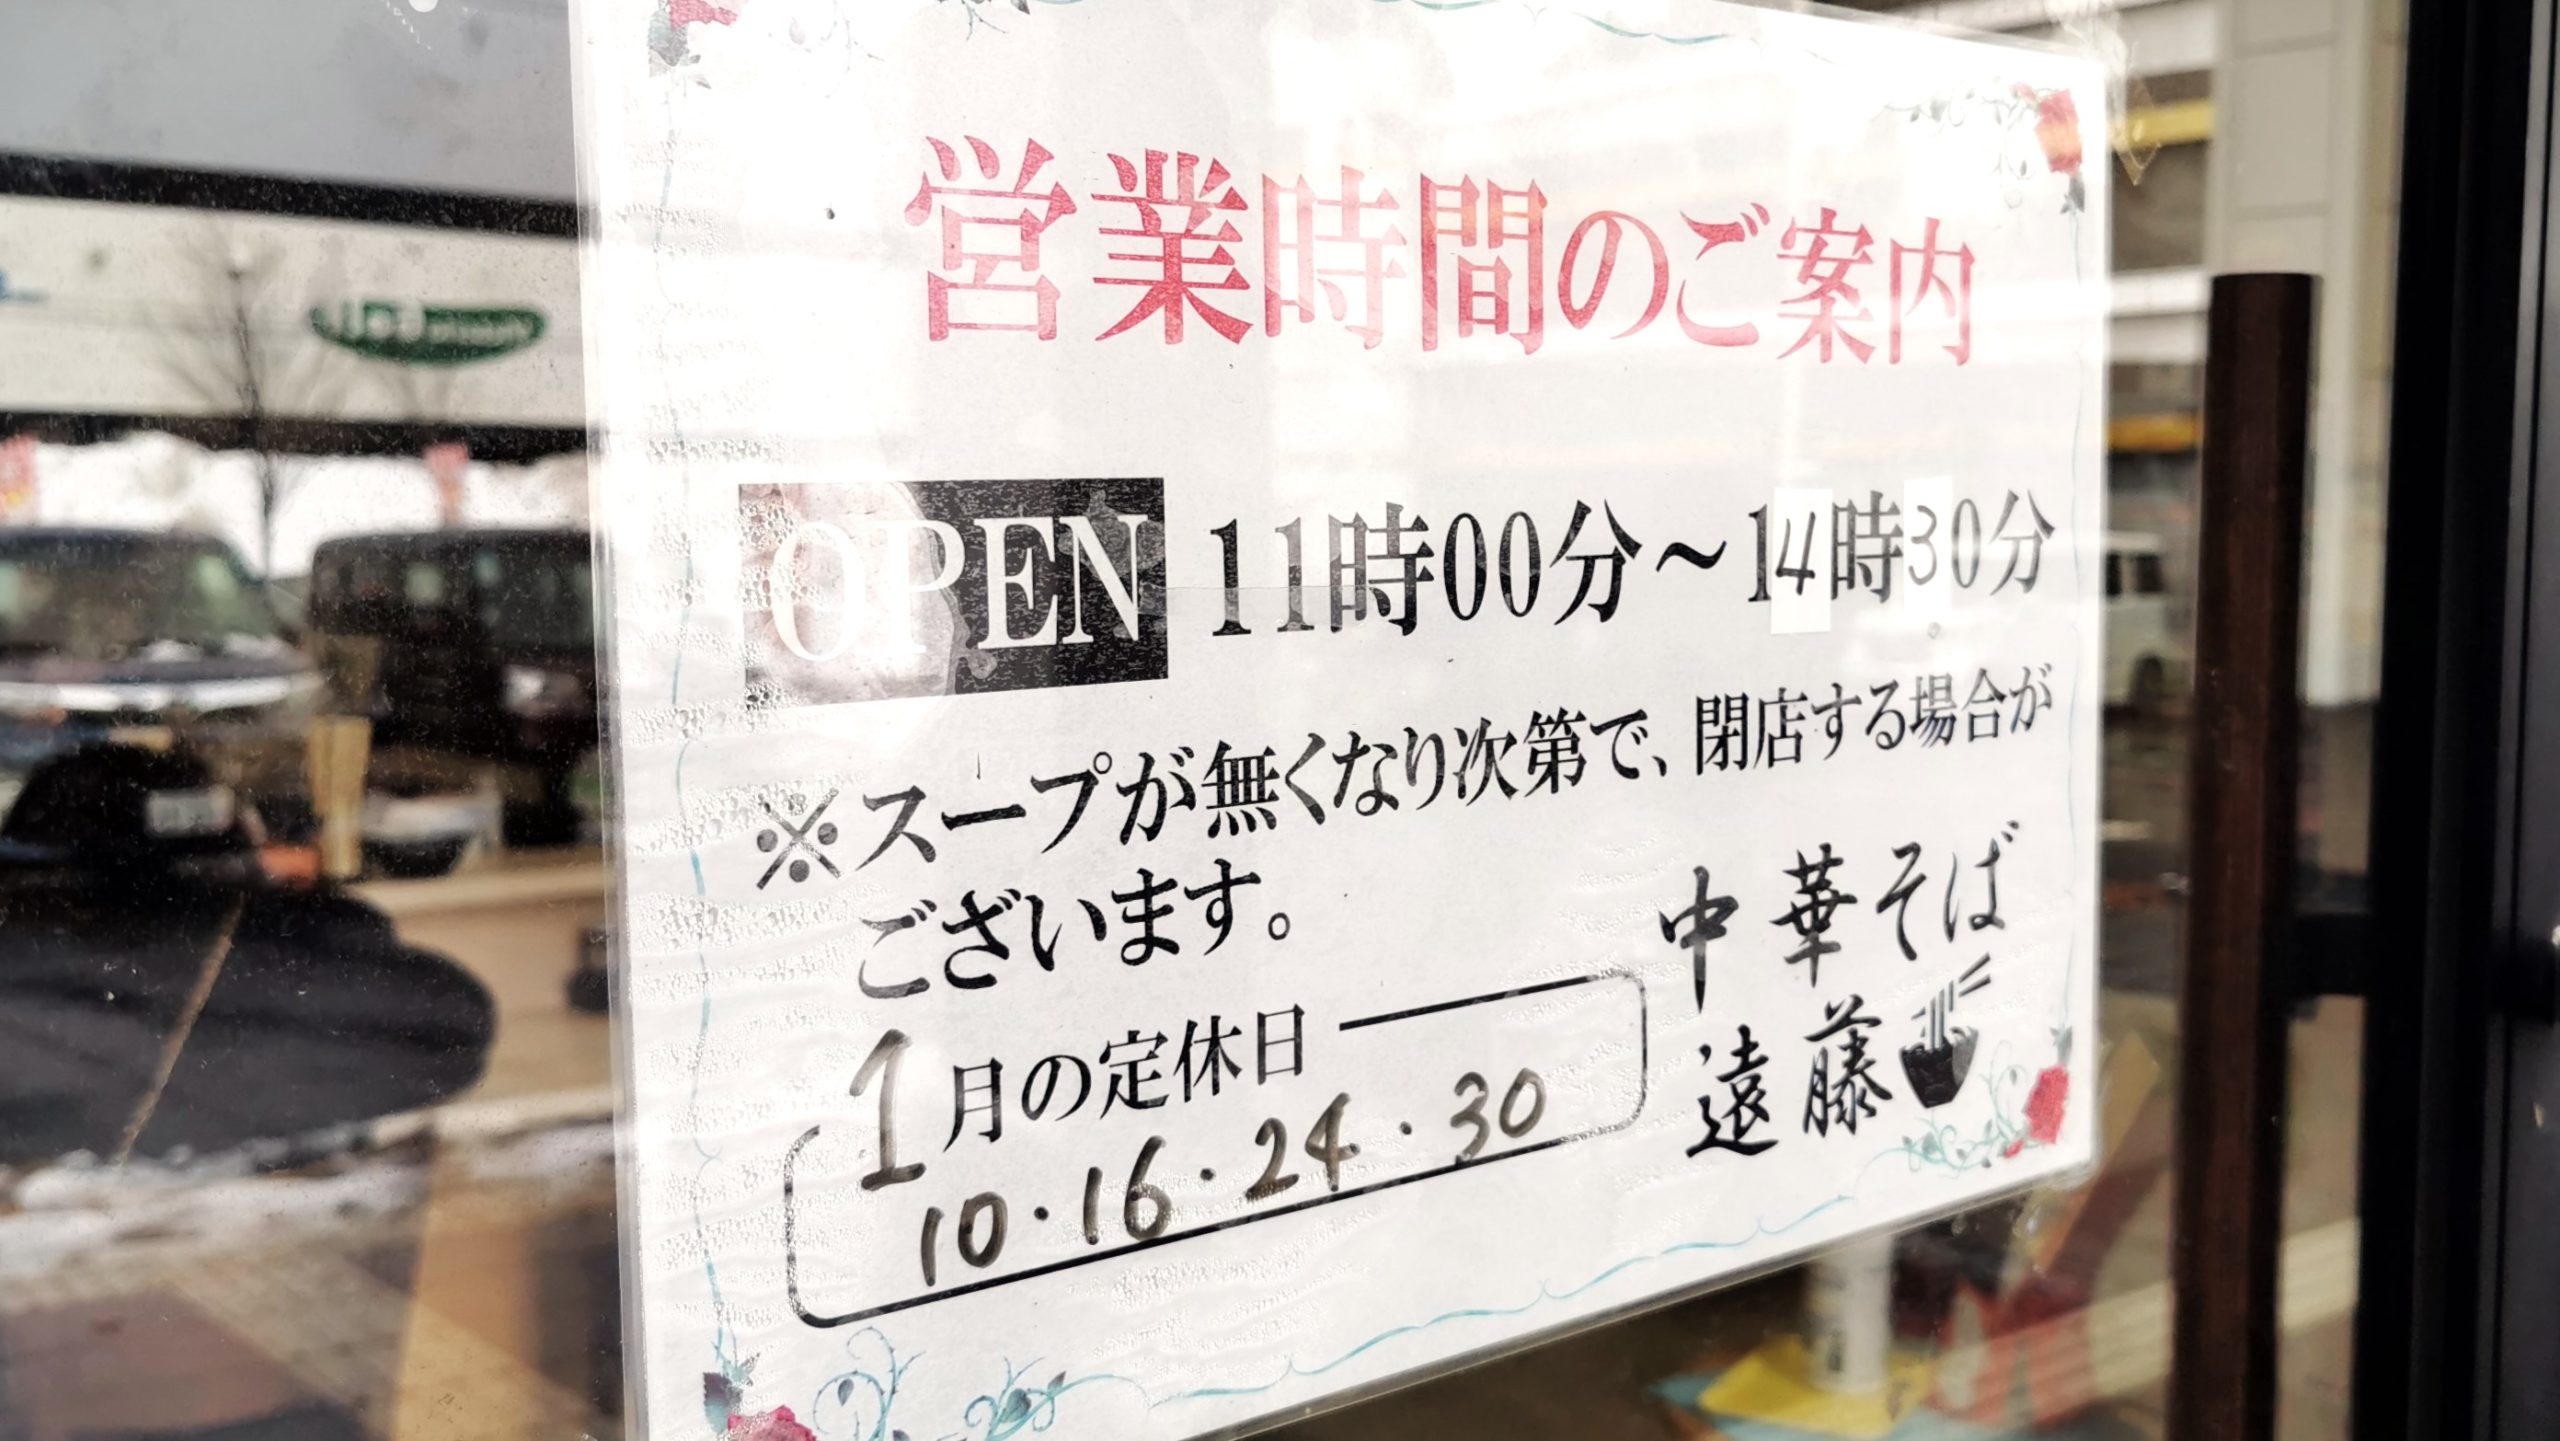 営業時間のご案内
OPEN 11時00分～14時30分
※スープが無くなり次第で、閉店する場合が
ございます。
1月の定休日
10・16・24・30
中華そば
遠藤